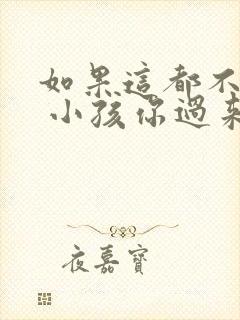 如果這都不
小孩你過來
夜嘉寶